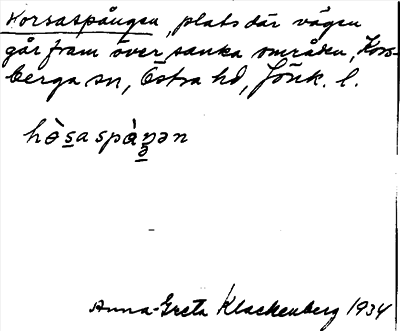 Horsaspången, plats där vägen
går fram över sanka områden, Kors-
berga sn, Östra hd, Jönk. l.
hòsaspàŋən
Anna-Greta Klackenberg 1934